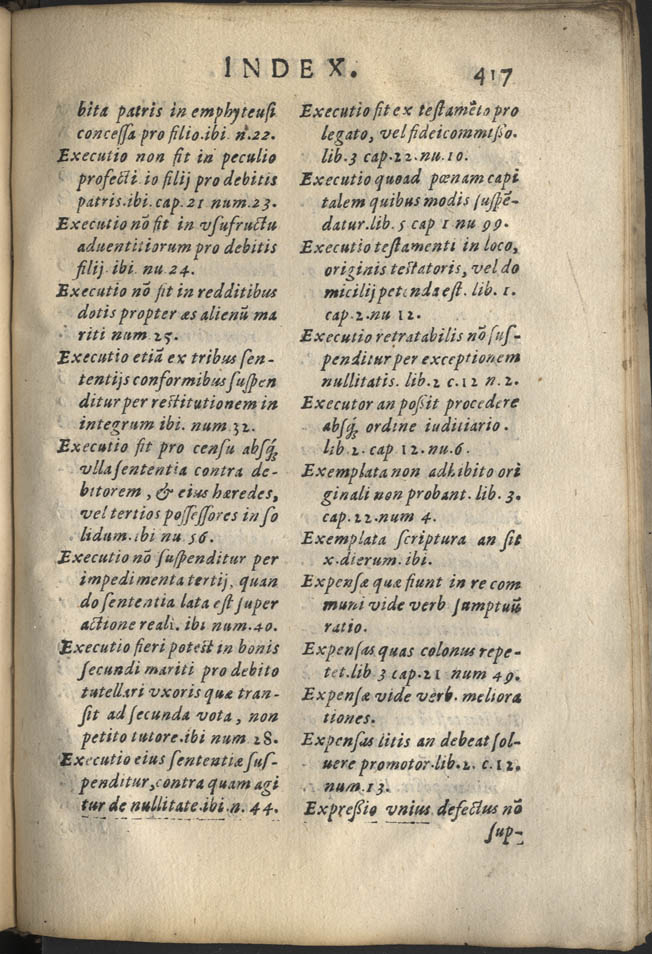 INDEX. 417
bita patris in emphyteusi
concessa pro filio.ibi n.22.
Executio non fit in peculio
profecti io filij pro debitis
patris.ibi.cap.21 num.23.
Executio nõ fit in vsufructu
aduentitiorum pro debitis
filij ibi nu 24.
Executio nõ fit in redditibus
dotis propter æs alienũ ma
riti num 25.
Executio etiã ex tribus sen-
tentijs conformibus suspen
ditur per restitutionem in
integrum ibi. num 32.
Executio fit pro censu absq;
vlla sententia contra de-
bitorem, & eius hæredes,
vel tertios possessores in so
lidum.ibi nu 56.
Executio nõ suspenditur per
impedimenta tertij, quan
do sententia lata est super
actione reali. ibi num.40.
Executio fieri potest in bonis
secundi mariti pro debito
tutellari vxoris quæ tran-
sit ad secunda vota, non
petito tutore.ibi num 28.
Executio eius sententiæ sus-
penditur,contra quam agi
tur de nullitate.ibi n. 44.
Executio fit ex testamẽto pro
legato, vel fideicommisso.
lib.3 cap.22.nu.10.
Executio quoad pœnam capi
talem quibus modis suspẽ-
datur.lib.5 cap 1 nu 99.
Executio testamenti in loco,
originis testatoris, vel do
micilij petenda est. lib.1.
cap.2.nu 12.
Executio retratabilis nõ sus-
penditur per exceptionem
nullitatis. lib.2 c.12 n.2.
Executor an possit procedere
absq; ordine iuditiario.
lib.2.cap 12.nu.6.
Exemplata non adhibito ori
ginali non probant. lib. 3.
cap.22.num 4.
Exemplata scriptura an sit
x.dierum.ibi.
Expensæ quæ fiunt in re com
muni vide verb sumptuũ
ratio.
Expensas quas colonus repe-
tet.lib 3 cap.21 num 49.
Expensæ vide verb. meliora
tiones.
Expensas litis an debeat sol-
uere promotor.lib.2. c.12.
num.13.
Expressio vnius defectus nõ
sup-